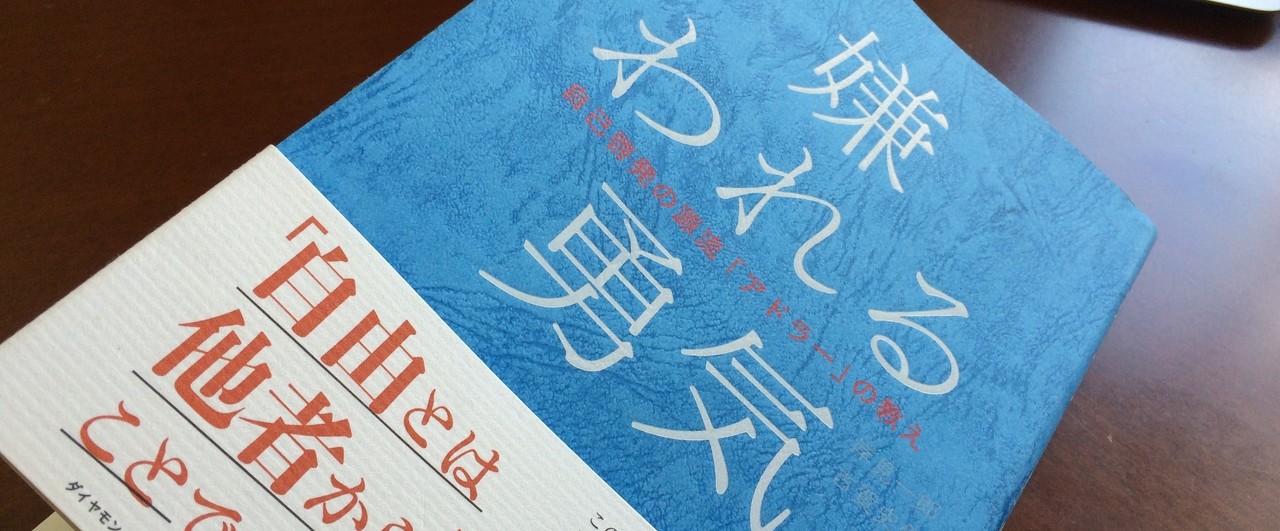 嫌われる勇気
自己啓発の源流「アドラー」の教え
「自由とは
他者か
ことで
ダイヤモン
この